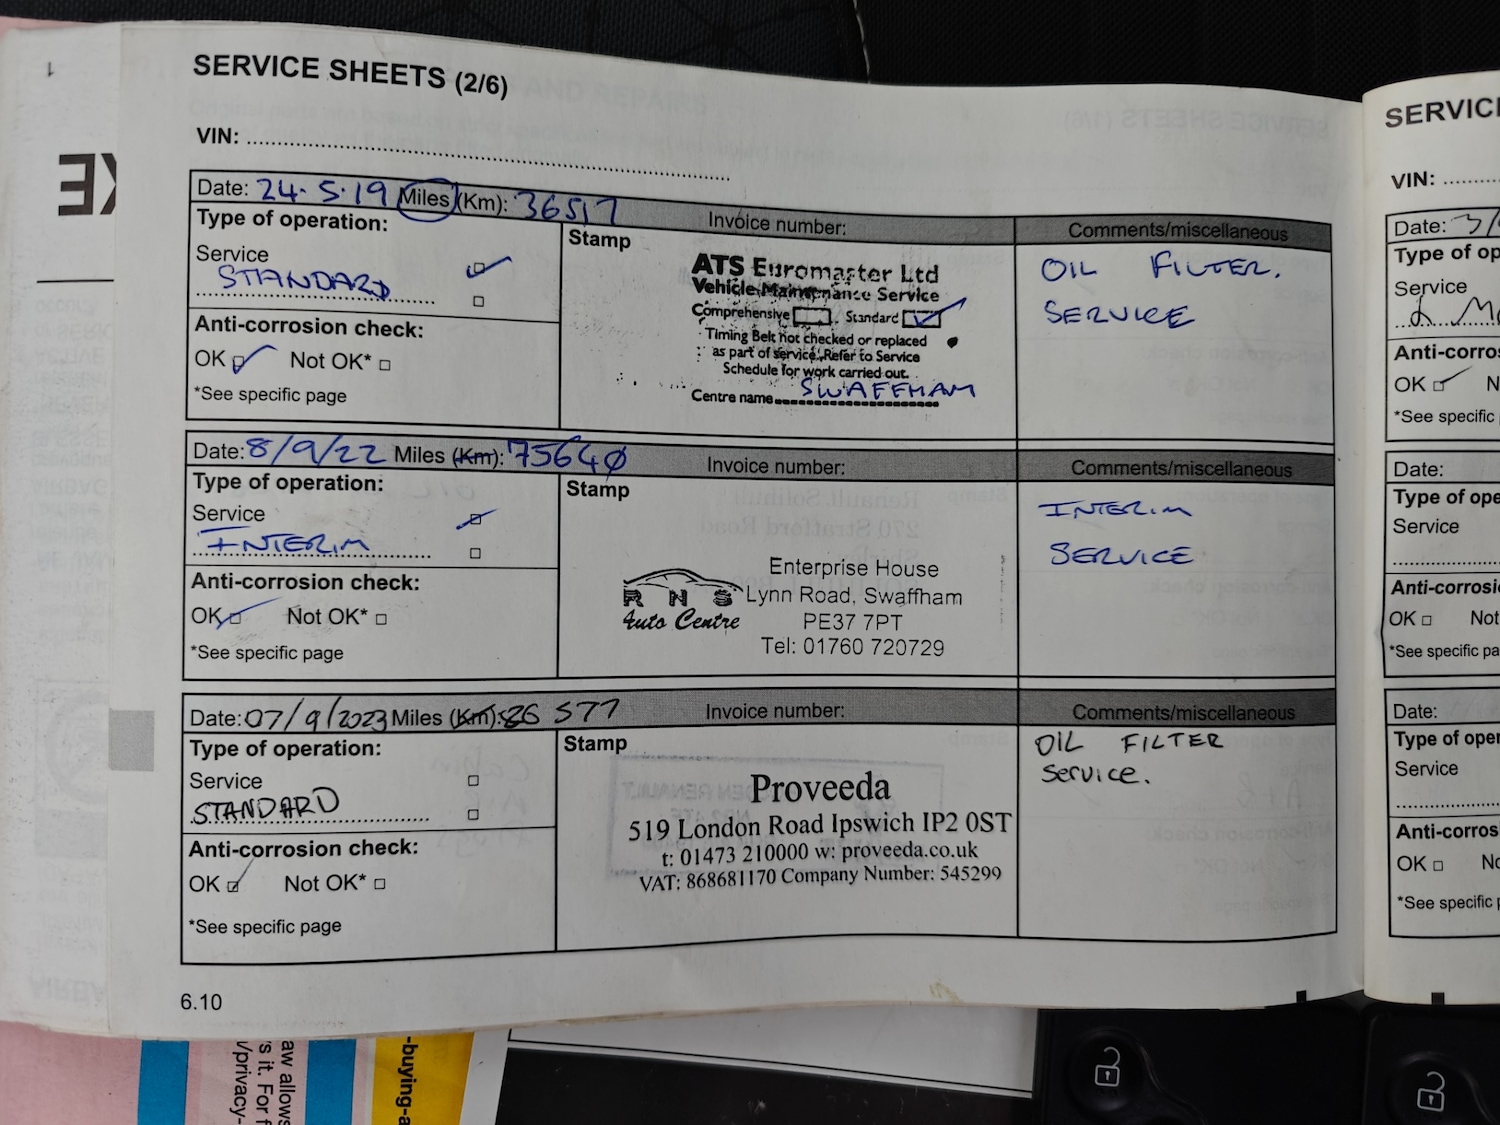 SERVICE SHEETS (2/6)
VIN:
Date: 24.5.19 Miles (Km): 36517 Invoice number: Comments/miscellaneous
Type of operation:
Service
STANDARD
Anti-corrosion check:
OK Not OK*
*See specific page
Stamp
ATS Euromaster Ltd
Vehicle Maintenance Service
Comprehensive Standard
Timing Belt not checked or replaced
as part of service, Refer to Service
Schedule for work carried out.
Centre name SWAFFHAM
OIL FILTER.
SERVICE
Date: 8/9/22 Miles (Km): 75640 Invoice number: Comments/miscellaneous
Type of operation:
Service
INTERIM
Anti-corrosion check:
OK Not OK*
*See specific page
Stamp
RNS
Auto Centre
Enterprise House
Lynn Road, Swaffham
PE37 7PT
Tel: 01760 720729
INTERIM
SERVICE
Date: 07/9/2023 Miles (Km): 86 577 Invoice number: Comments/miscellaneous
Type of operation:
Service
STANDARD
Anti-corrosion check:
OK Not OK*
*See specific page
Stamp
Proveeda
519 London Road Ipswich IP2 0ST
t: 01473 210000 w: proveeda.co.uk
VAT: 868681170 Company Number: 545299
OIL FILTER
Service.
6.10
SERVICE
VIN:
Date: 3/
Type of op
Service
Anti-corro
OK N
*See specific
Date:
Type of ope
Service
Anti-corrosi
OK Not
*See specific pa
Date:
Type of oper
Service
Anti-corros
OK No
*See specific p
aw allows
s it. For f
/privacy-
-buying-a